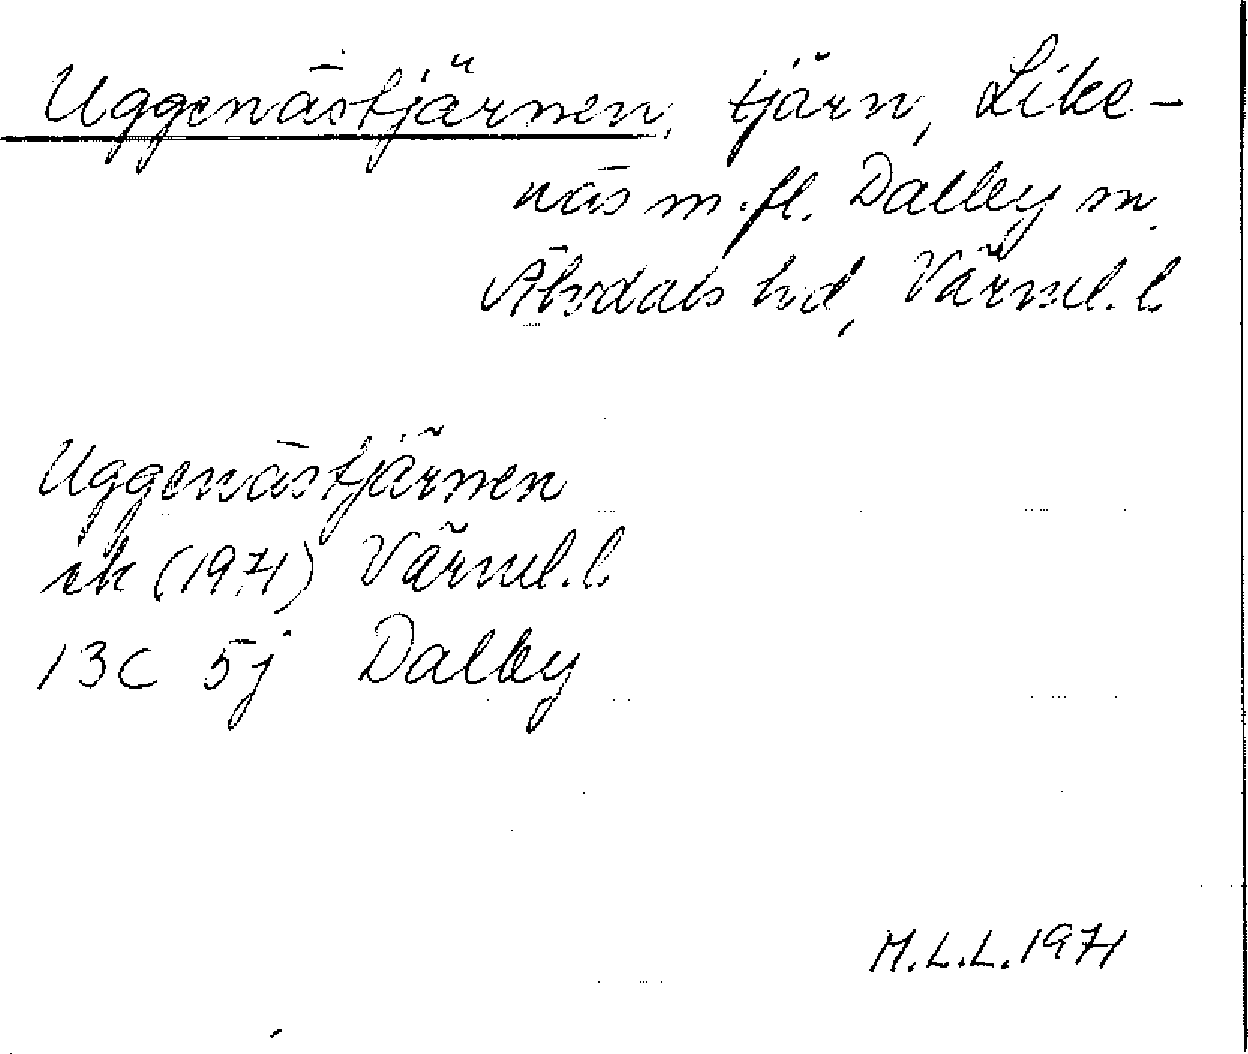 Uggenästjärnen, tjärn, Like-
näs m.fl. Dalby sn.
Älvdals hd, Värml. l.
Uggenästjärnen
ek (1971) Värml. l.
13C 5j Dalby
M.L.L. 1971